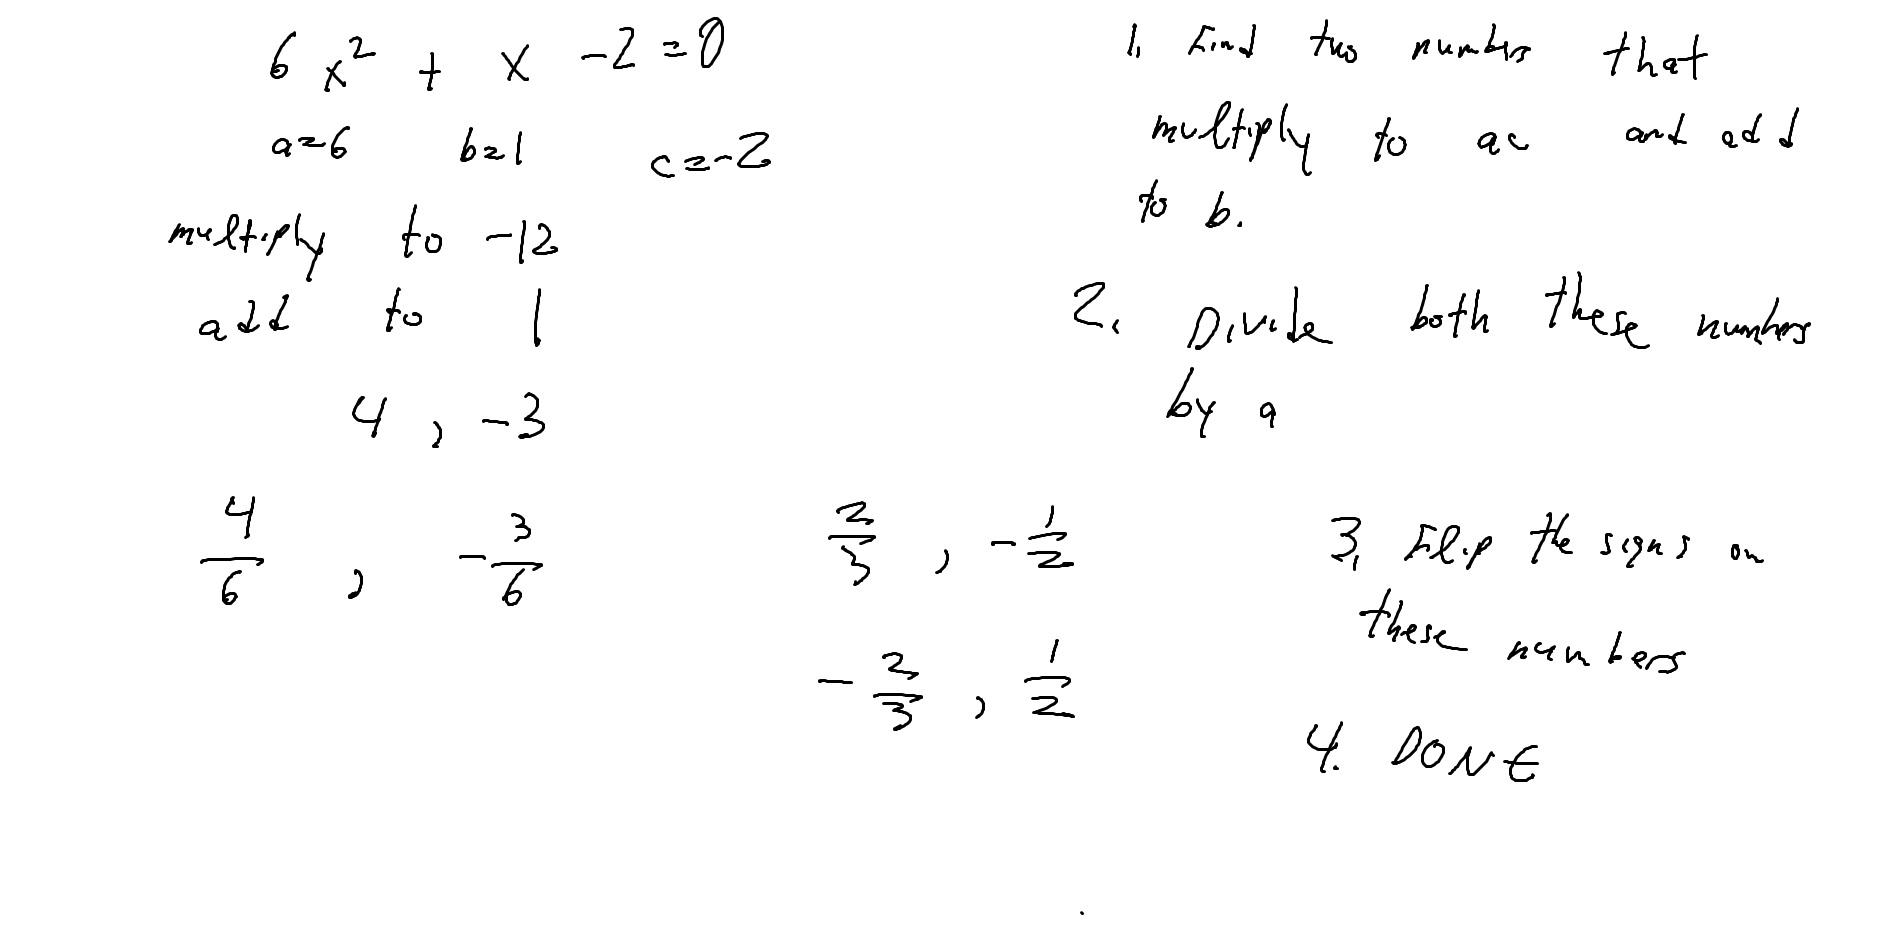 6x² + x - 2 = 0
a=6 b=1 c=-2
multiply to -12
add to 1
4, -3
4/6, -3/6
2/3, -1/2
-2/3, 1/2
1. Find two numbers that
multiply to ac and add
to b.
2. Divide both these numbers
by a
3. Flip the signs on
these numbers
4. DONE